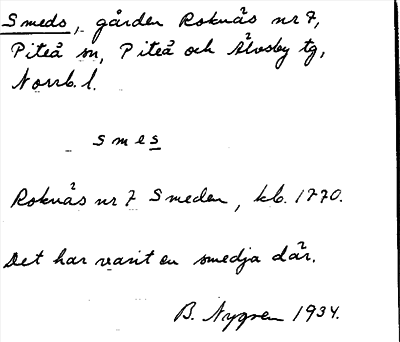 Smeds, gården Roknäs nr 7,
Piteå sn, Piteå och Älvsby tg,
Norrb. l.
smes
Roknäs nr 7 Smeden, kb. 1770.
Det har varit en smedja där.
B. Nygren 1934.